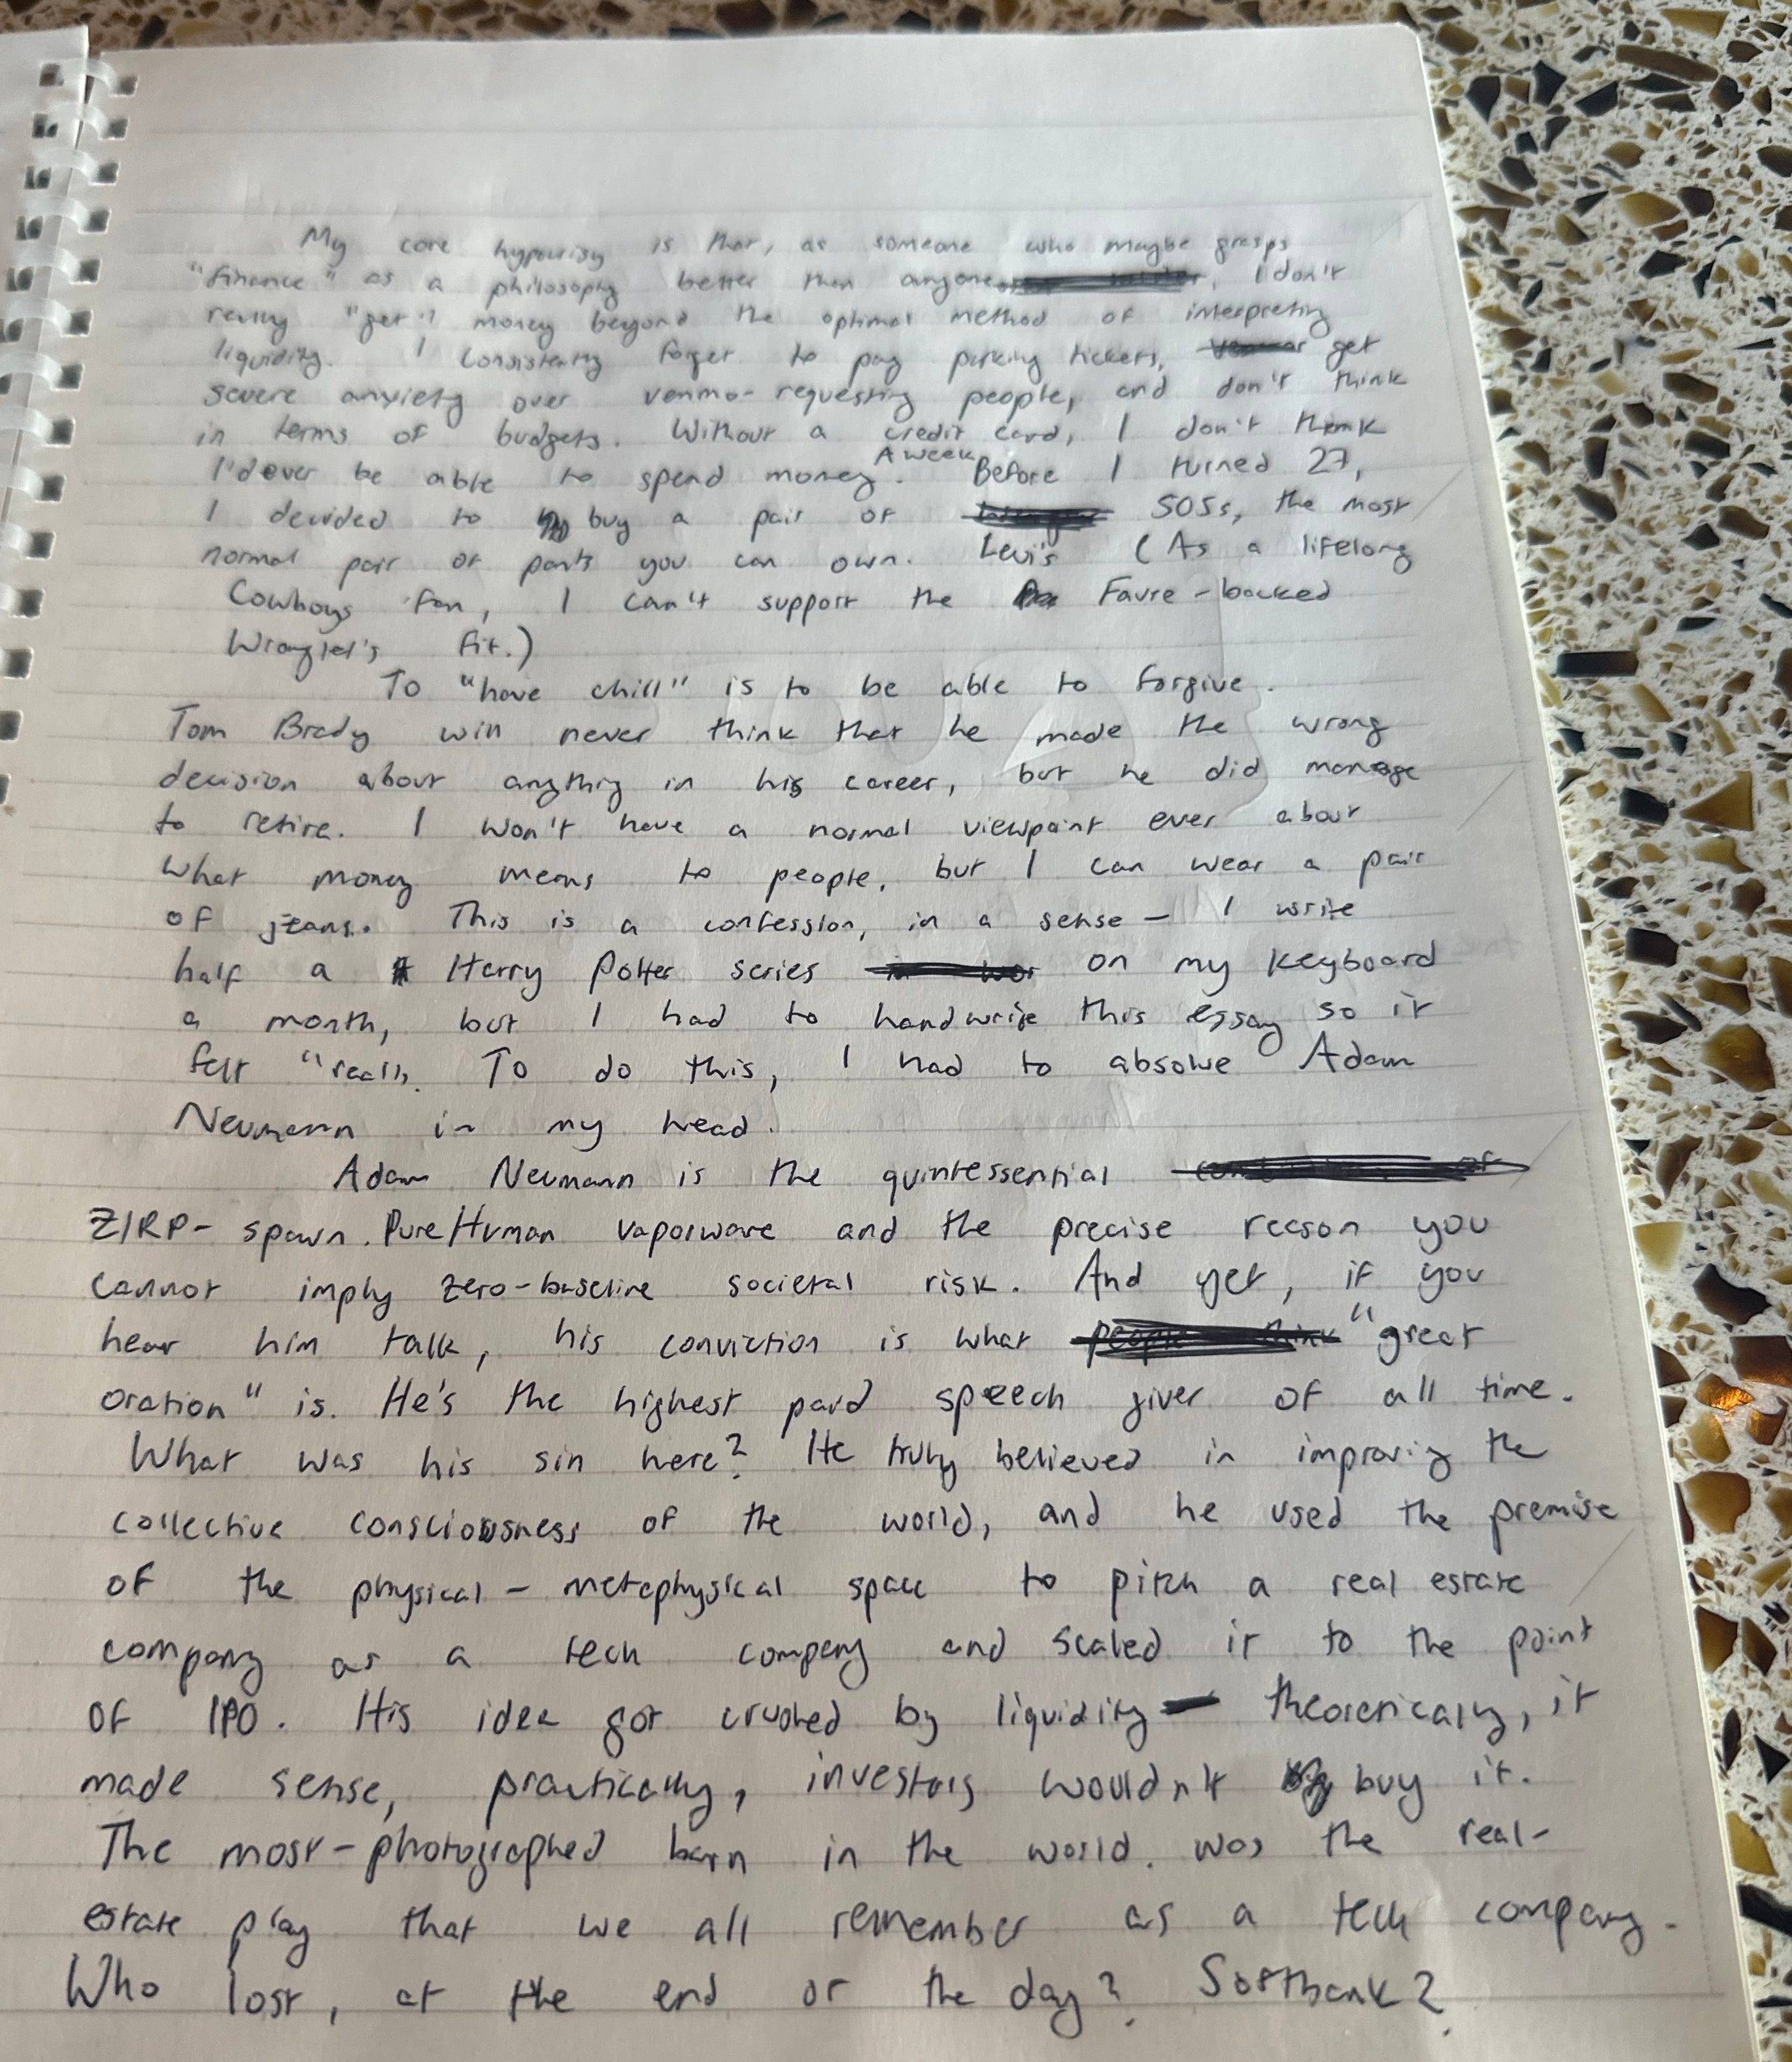 My core hypocrisy is that, as someone who maybe grasps
"finance" as a philosophy better than anyone, I don't
really "get" money beyond the optimal method of interpreting
liquidity. I consistently forget to pay parking tickets, get
severe anxiety over venmo-requesting people, and don't think
in terms of budgets. Without a credit card, I don't think
I'd ever be able to spend money. A week Before I turned 27,
I decided to buy a pair of 505s, the most
normal pair of pants you can own. Levi's (As a lifelong
Cowboys fan, I can't support the Favre-backed
Wrangler's fit.)
To "have chill" is to be able to forgive.
Tom Brady will never think that he made the wrong
decision about anything in his career, but he did manage
to retire. I won't have a normal viewpoint ever about
what money means to people, but I can wear a pair
of jeans. This is a confession, in a sense — I write
half a Harry Potter series on my keyboard
a month, but I had to handwrite this essay so it
felt "real". To do this, I had to absolve Adam
Neumann in my head.
Adam Neumann is the quintessential
ZIRP-spawn. Pure Human vaporware and the precise reason you
cannot imply zero-baseline societal risk. And yet, if you
hear him talk, his conviction is what "great
oration" is. He's the highest paid speech giver of all time.
What was his sin here? He truly believed in improving the
collective consciousness of the world, and he used the premise
of the physical-metaphysical space to pitch a real estate
company as a tech company and scaled it to the point
of IPO. His idea got crushed by liquidity — theoretically, it
made sense, practically, investors wouldn't buy it.
The most-photographed barn in the world. was the real-
estate play that we all remember as a tech company.
Who lost, at the end of the day? Softbank?